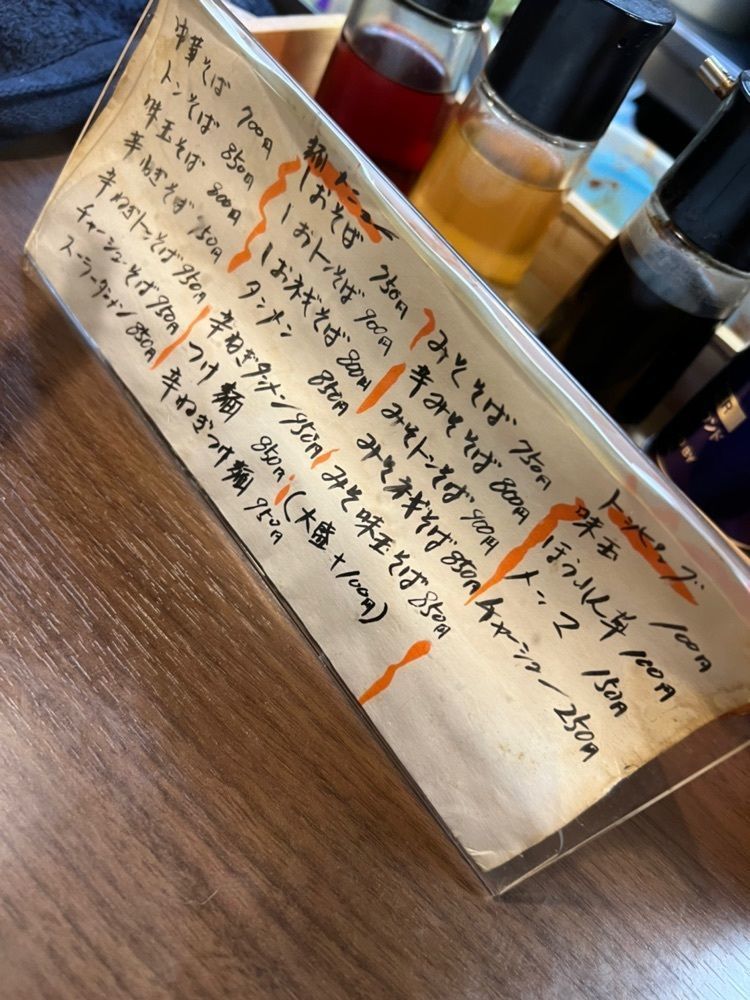 麺メニュー
中華そば 700円
トンそば 850円
味玉そば 800円
辛ねぎそば 750円
辛ねぎトンそば 950円
チャーシューそば 950円
スーラータンメン 850円
しおそば 750円
しおトンそば 900円
しおネギそば 800円
タンメン 850円
辛ねぎタンメン 950円
つけ麺 850円
辛ねぎつけ麺 950円
(大盛+100円)
みそそば 750円
辛みそそば 800円
みそトンそば 900円
みそネギそば 850円
みそ味玉そば 850円
トッピング
味玉 100円
ほうれん草 100円
メンマ 150円
チャーシュー 250円